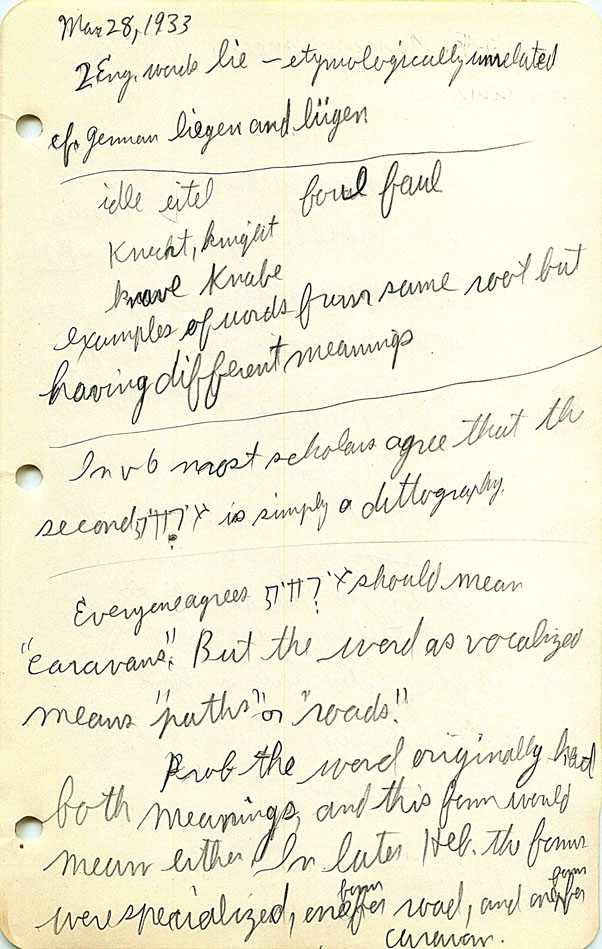 Mar 28, 1933
2 Eng. words lie — etymologically unrelated
cf. German liegen and lügen
idle eitel foul faul
Knecht, knight
knave Knabe
examples of words from same root but
having different meanings.
In v 6 most scholars agree that th
second is simply a dittography.
Everyone agrees should mean
"caravans". But the word as vocalized
means "paths" or "roads."
Prob the word originally had
both meanings, and this form would
mean either. In later Heb. the forms
were specialized, one form for road, and one form for
caravan.